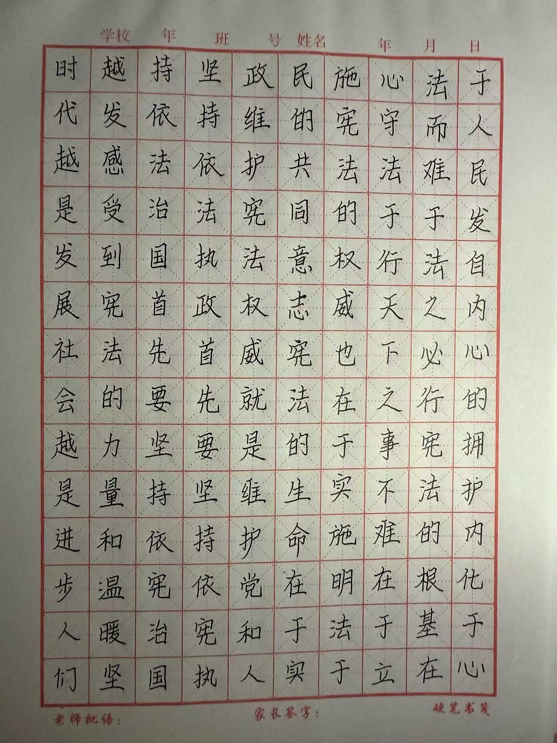 学校 年 班 号 姓名 年 月 日
时代越是发展社会越是进步人们
越发感受到宪法的力量和温暖坚
持依法治国首先要坚持依宪治国
坚持依法执政首先要坚持依宪执
政维护宪法权威就是维护党和人
民的共同意志宪法的生命在于实
施宪法的权威也在于实施明法于
心守法于行天下之事不难在于立
法而难于法之必行宪法的根基在
于人民发自内心的拥护内化于心
老师批语： 家长签字： 硬笔书笺